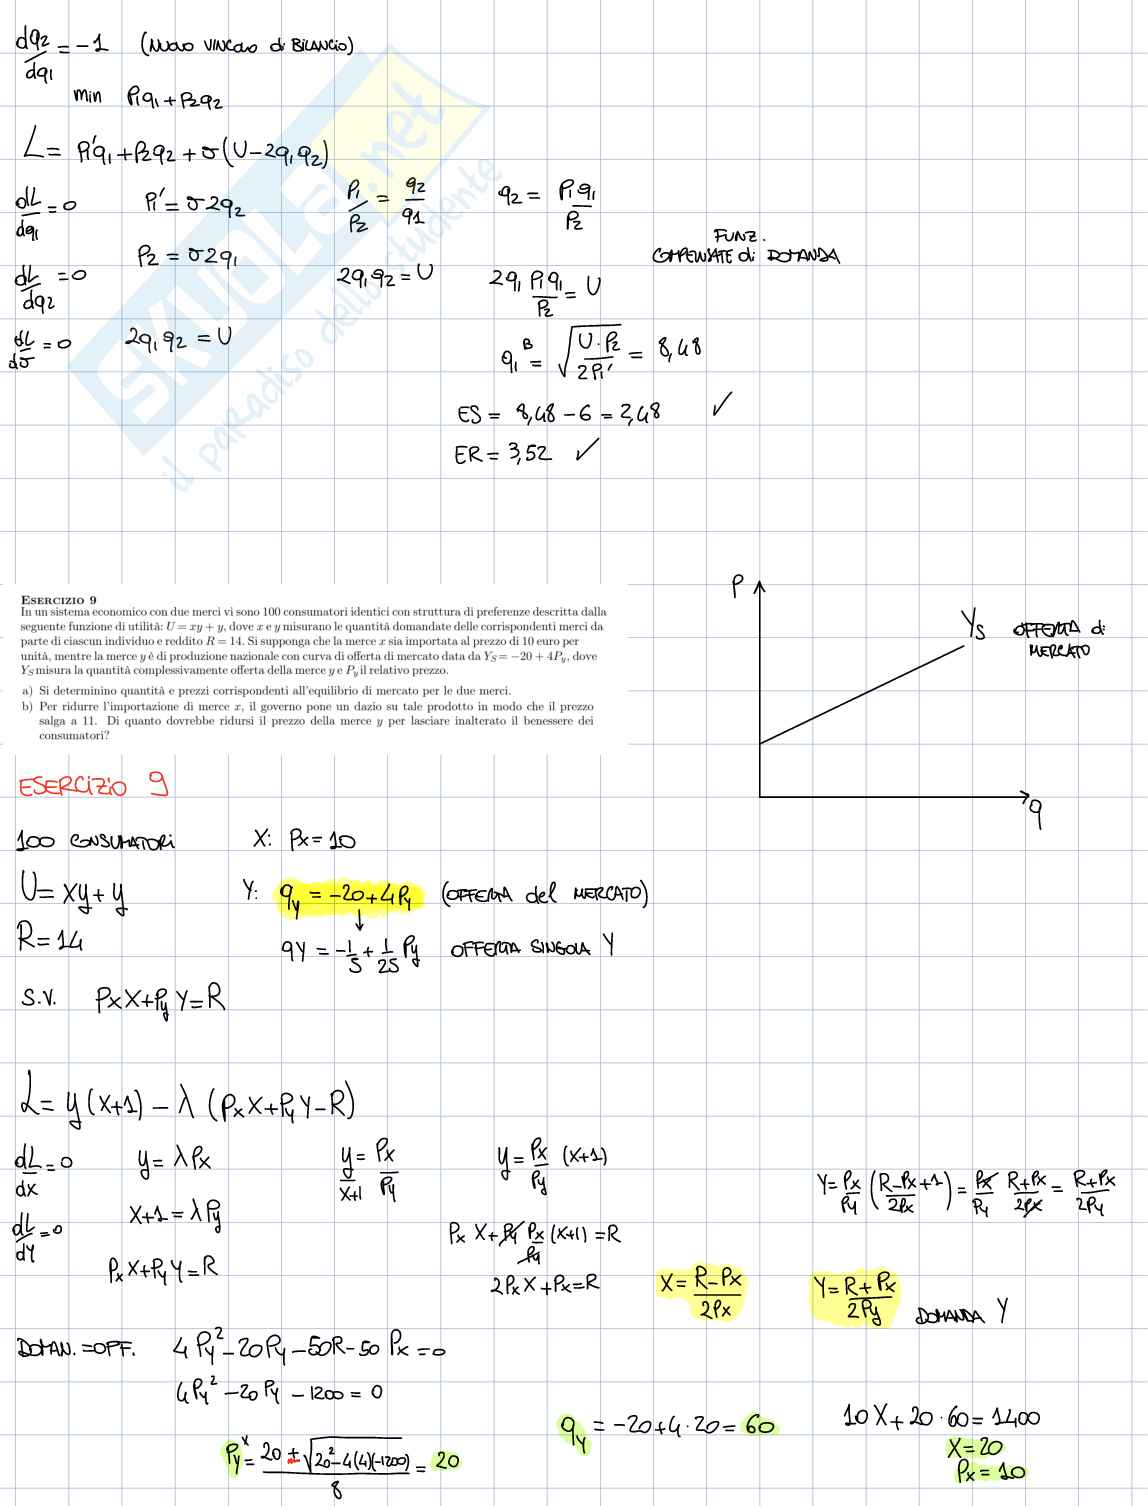 dq2/dq1 = -1 (Nuovo VINCOLO di BILANCIO)
min P1q1 + P2q2
L = P1'q1 + P2q2 + σ(U - 2q1q2)
dL/dq1 = 0 P1' = σ2q2 P1/P2 = q2/q1 q2 = P1q1/P2
FUNZ.
COMPENSATE di DOMANDA
dL/dq2 = 0 P2 = σ2q1 2q1q2 = U 2q1 P1q1/P2 = U
dL/dσ = 0 2q1q2 = U q1^B = √(U·P2/2P1') = 8,48
ES = 8,48 - 6 = 2,48 ✓
ER = 3,52 ✓
SKUOLA.net
il paradiso dello studente
ESERCIZIO 9
In un sistema economico con due merci vi sono 100 consumatori identici con struttura di preferenze descritta dalla
seguente funzione di utilità: U = xy + y, dove x e y misurano le quantità domandate delle corrispondenti merci da
parte di ciascun individuo e reddito R = 14. Si supponga che la merce x sia importata al prezzo di 10 euro per
unità, mentre la merce y è di produzione nazionale con curva di offerta di mercato data da YS = −20 + 4Py, dove
YS misura la quantità complessivamente offerta della merce y e Py il relativo prezzo.
a) Si determinino quantità e prezzi corrispondenti all'equilibrio di mercato per le due merci.
b) Per ridurre l'importazione di merce x, il governo pone un dazio su tale prodotto in modo che il prezzo
salga a 11. Di quanto dovrebbe ridursi il prezzo della merce y per lasciare inalterato il benessere dei
consumatori?
P
YS OFFERTA di
MERCATO
q
ESERCIZIO 9
100 CONSUMATORI X: Px = 10
U = xy + y Y: qy = -20 + 4Py (OFFERTA del MERCATO)
↓
R = 14 qY = -1/5 + 1/25 Py OFFERTA SINGOLA Y
S.V. PxX + PyY = R
L = y(x+1) - λ(PxX + PyY - R)
dL/dx = 0 y = λPx y/x+1 = Px/Py y = Px/Py (x+1)
Y = Px/Py (R-Px/2Px + 1) = Px/Py R+Px/2Px = R+Px/2Py
dL/dY = 0 x+1 = λPy Px X + Py Px/Py (x+1) = R
PxX + PyY = R 2PxX + Px = R X = R-Px/2Px Y = R+Px/2Py DOMANDA Y
DOMAN. = OFF. 4Py² - 20Py - 50R - 50Px = 0
4Py² - 20Py - 1200 = 0
qy = -20 + 4·20 = 60 10X + 20·60 = 1400
X = 20
Py* = 20 ± √(20² - 4(4)(-1200)) / 8 = 20
Px = 10